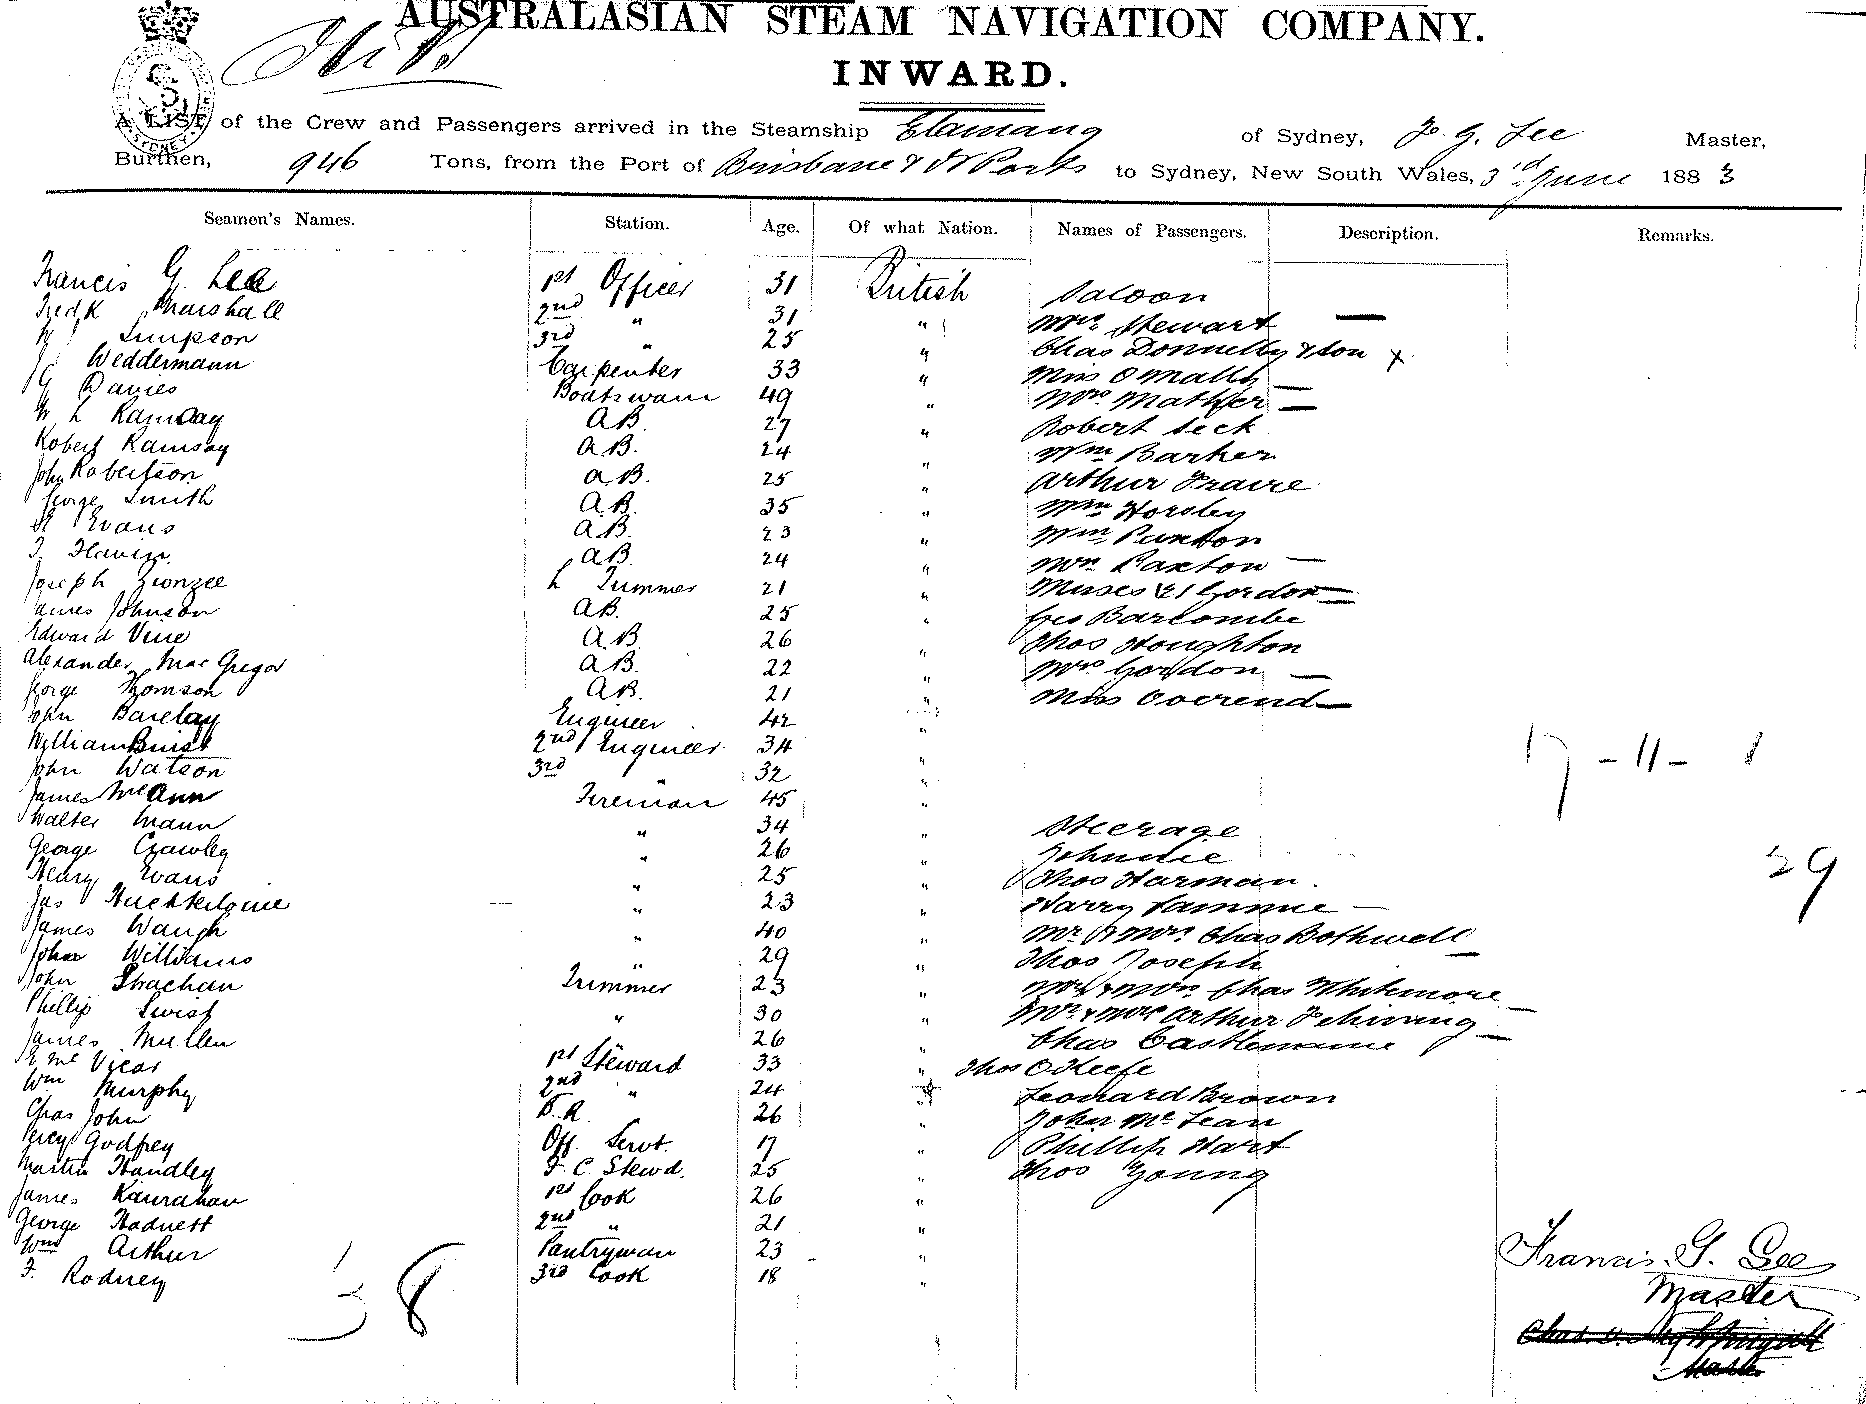 AUSTRALASIAN STEAM NAVIGATION COMPANY.
INWARD.
A LIST of the Crew and Passengers arrived in the Steamship Elamang of Sydney, F. G. Lee Master,
Burthen, 946 Tons, from the Port of Brisbane & N Ports to Sydney, New South Wales, 3rd June 1883
Seamen's Names. Station. Age. Of what Nation. Names of Passengers. Description. Remarks.
Francis G. Lee 1st Officer 31 British Saloon
Fredk Marshall 2nd " 31 " Mrs. Stewart —
Simpson 3rd " 25 " Chas Donnelly & Son x
Weddermann Carpenter 33 " Miss O Mally —
G Davies Boatswain 49 " Mrs. Mather —
W L Ramsay A.B. 27 " Robert
Robert Ramsay A.B. 24 " Wm Barker
John Robertson A.B. 25 " Arthur
George Smith A.B. 35 " Wm Horsley
Evans A.B. 23 " Wm
A.B. 24 " Paxton —
Joseph Trimmer 21 " Misses Gordon —
James Johnson A.B. 25 " Geo Barcombe
Edward Vine A.B. 26 " Thos Houghton
Alexander MacGregor A.B. 22 " Mrs Gordon —
George Thomson A.B. 21 " Miss Overend —
John Barclay Engineer 42 "
William Buist 2nd Engineer 34 "
John Watson 3rd " 32 "
17 - 11 - 1
James McCann Fireman 45 "
Walter Mann " 34 " Steerage
George Crawley " 26 " Johnnie
Henry Evans " 25 " Thos Harman
Jas " 23 " Harry —
29
James Waugh " 40 " Mr & Mrs Chas Bothwell —
John Williams " 29 " Thos Joseph
John Strachan Trimmer 23 " Mr & Mrs Chas Whitmore —
Phillip " 30 " Mr & Mrs Arthur —
James Mullen " 26 " Chas Castlemaine
McVicar 1st Steward 33 " Thos O'Keefe
Wm Murphy 2nd " 24 " Leonard Brown
Chas John 26 " John McLean
Percy Godfrey Off. Servt. 17 " Phillip Hart
Martin Handley F. C. Stewd. 25 " Thos Young
James Kanrahan 1st Cook 26 "
George Hadnett 2nd " 21 "
Wm Arthur Pantryman 23 "
F. Rodney 3rd Cook 18 "
38
Francis. G. Lee
Master
Master